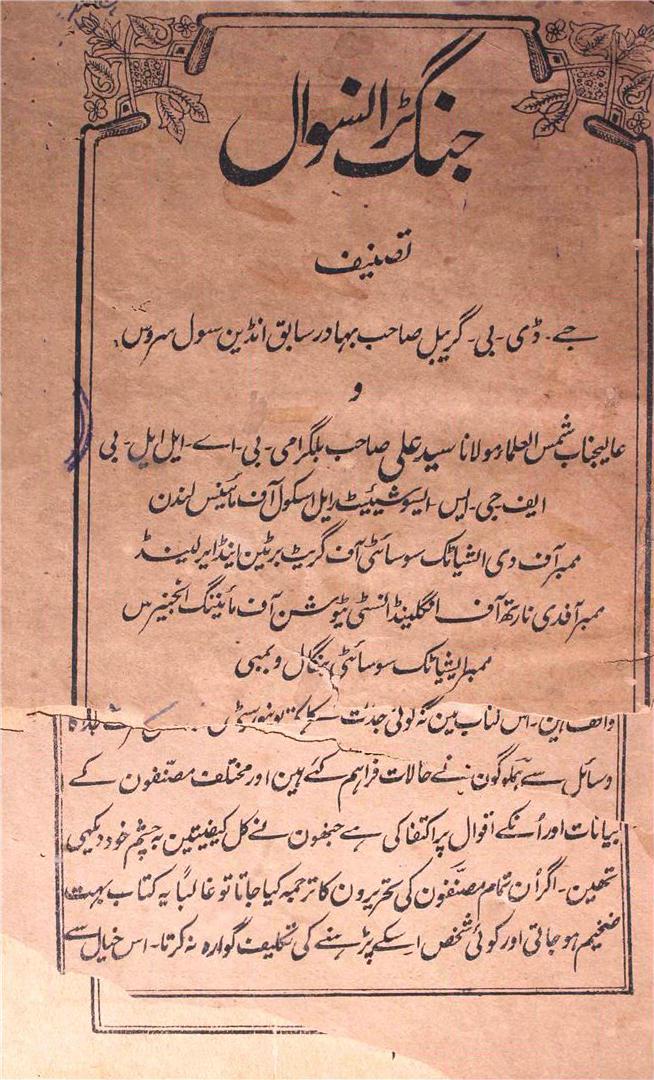 جنگ ٹرانسوال
تصنیف
جے۔ ڈی۔ بی۔ گریبل صاحب بہادر سابق انڈین سول سروس
و
عالیجناب شمس العلماء مولانا سید علی صاحب بلگرامی۔ بی۔ اے۔ ایل ایل۔ بی
ایف۔ جی۔ ایس۔ ایسوشیئیٹ رایل اسکول آف مائینس لندن
ممبر آف دی ایشیاٹک سوسائٹی آف گریٹ برٹین اینڈ ایرلینڈ
ممبر آف دی نارتھ آف انگلینڈ انسٹی ٹیوشن آف مائیننگ انجنیرس
ممبر ایشیاٹک سوسائٹی بنگال و بمبی
اس کتاب مین نہ کوئی جدت
وسائل سے ہملوگون نے حالات فراہم کئے ہین اور مختلف مصنّفون کے
بیانات اور اُنکے اقوال پر اکتفا کی ہے جنھون نے کل کیفیتین بہ چشم خود دیکھی
تھین۔ اگر اُن تمام مصنّفون کی تحریرون کا ترجمہ کیا جاتا تو غالباً یہ کتاب بہت
ضخیم ہو جاتی اور کوئی شخص اسکے پڑہنے کی تکلیف گوارہ نہ کرتا۔ اس خیال سے